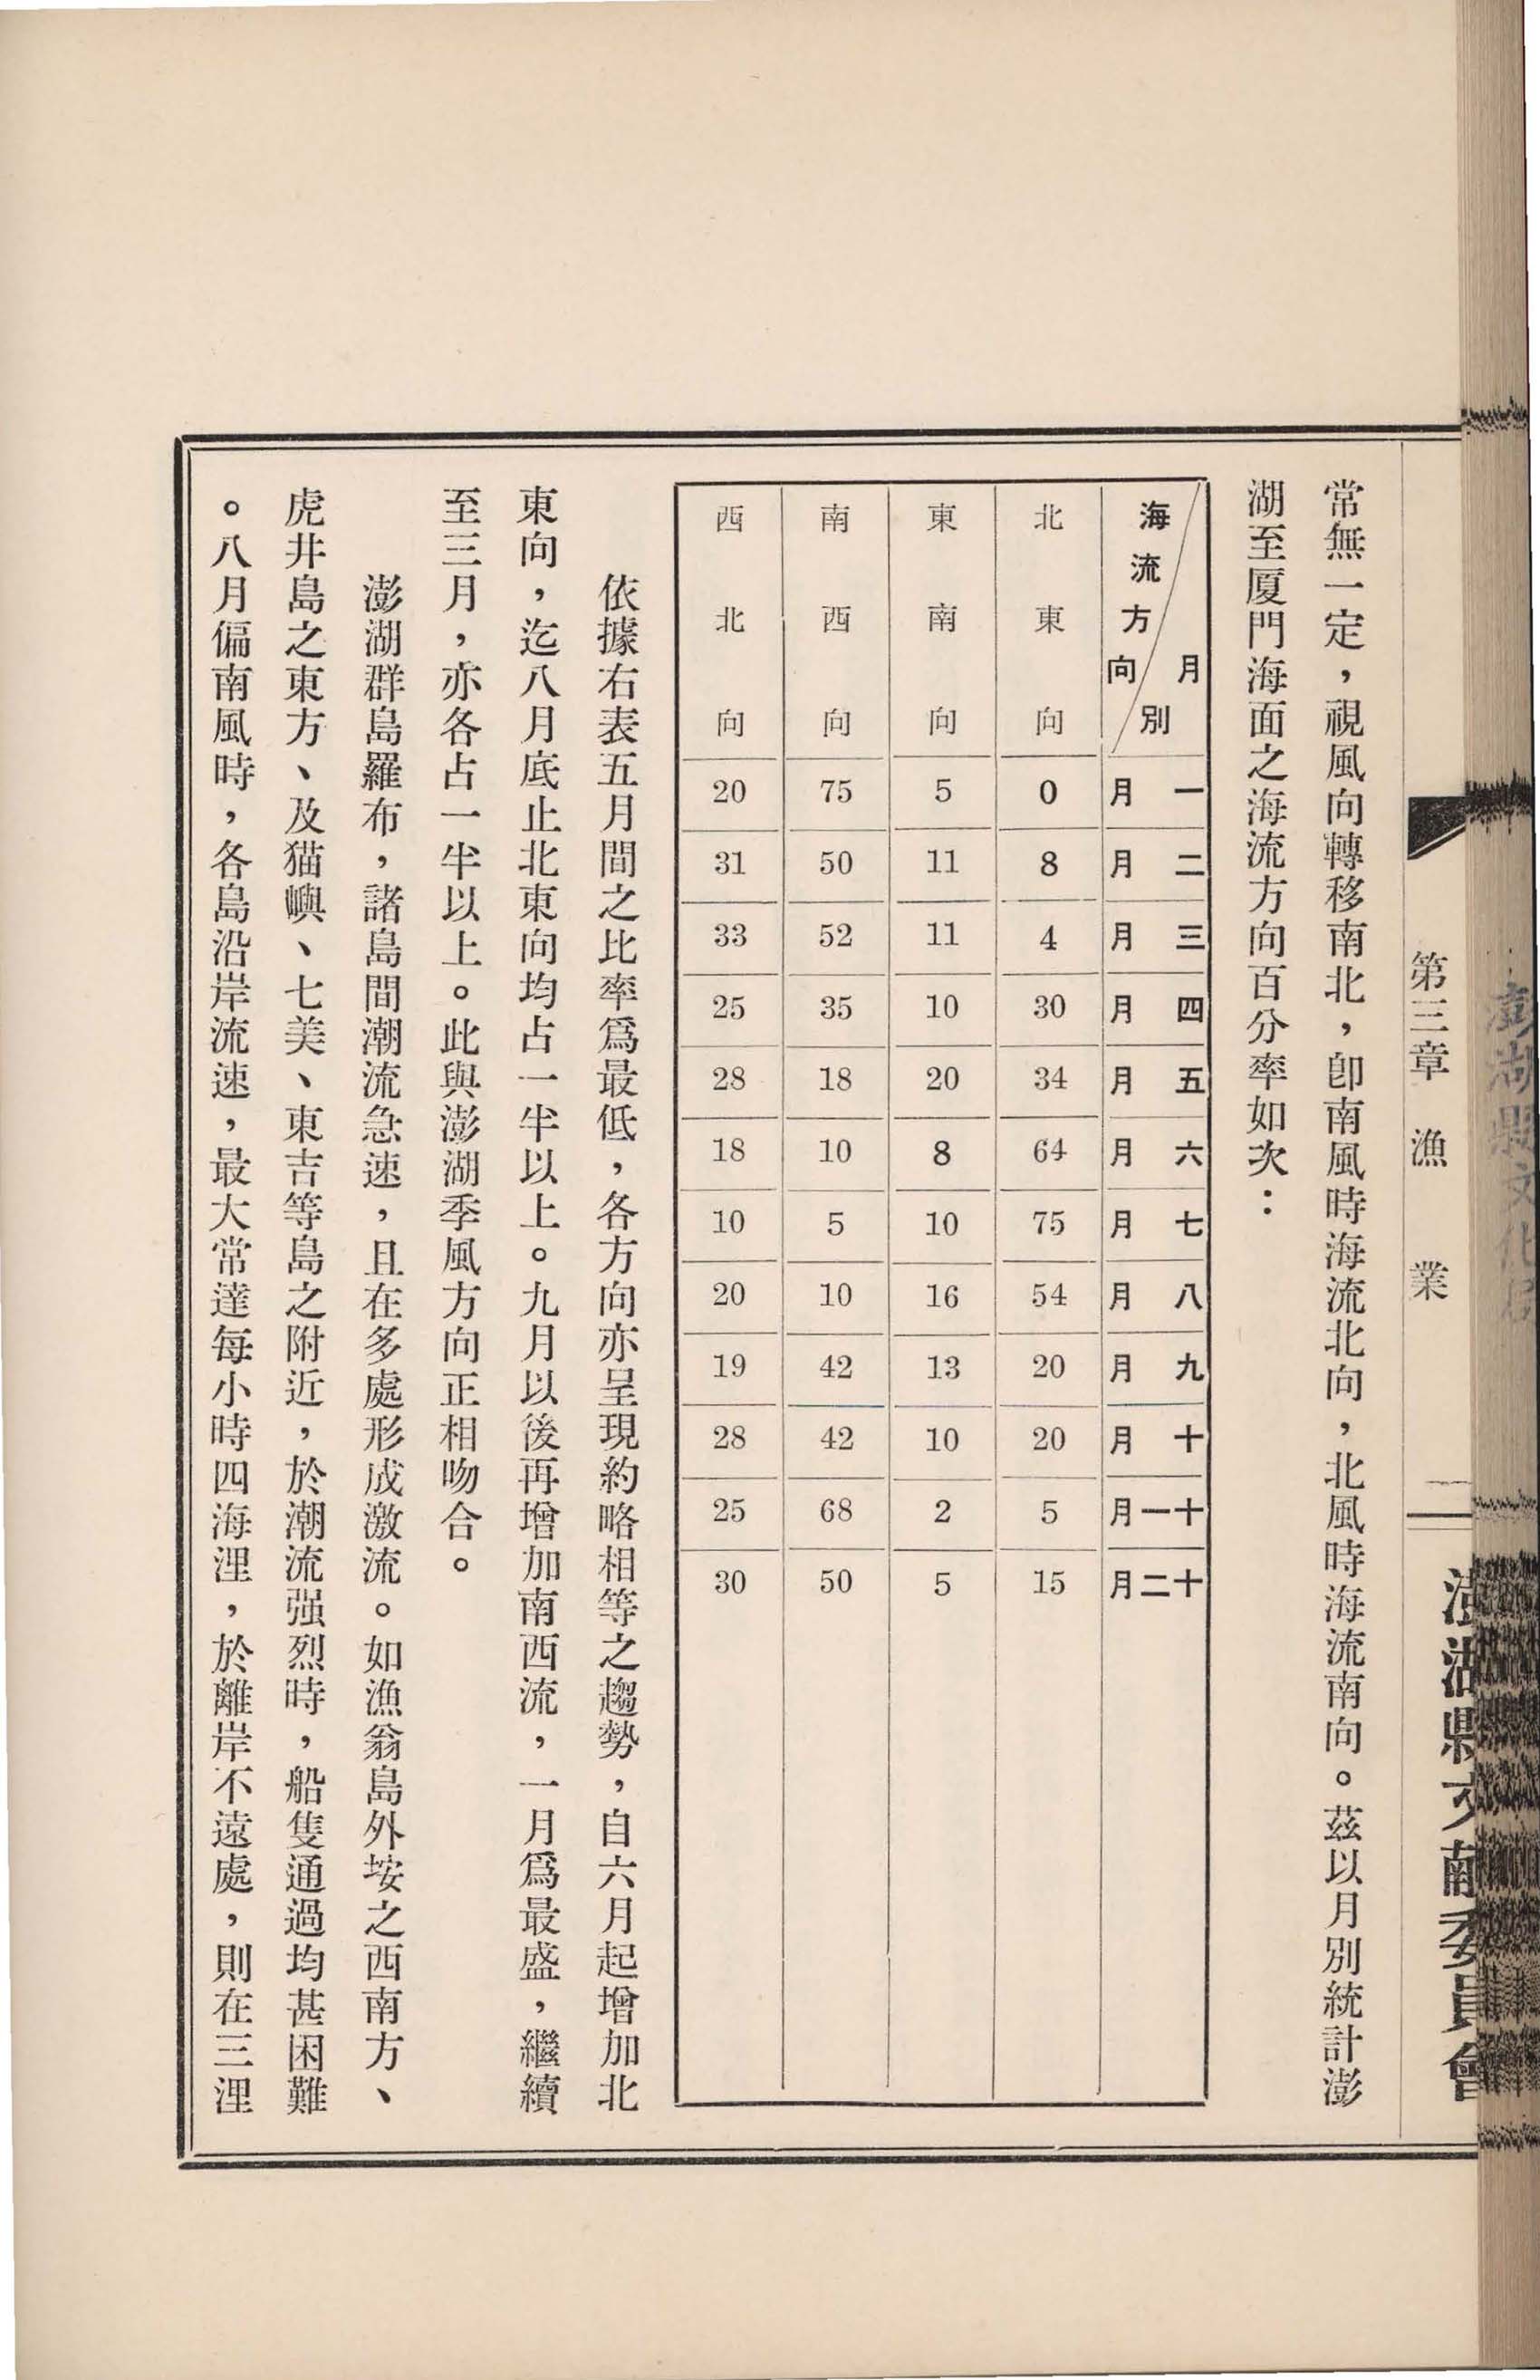 第三章　漁　業
一
澎湖縣文獻委員會
常無一定，視風向轉移南北，卽南風時海流北向，北風時海流南向。茲以月別統計澎
湖至厦門海面之海流方向百分率如次：
海流方向／月別　一月　二月　三月　四月　五月　六月　七月　八月　九月　十月　十一月　十二月
北東向　0　8　4　30　34　64　75　54　20　20　5　15
東南向　5　11　11　10　20　8　10　16　13　10　2　5
南西向　75　50　52　35　18　10　5　10　42　42　68　50
西北向　20　31　33　25　28　18　10　20　19　28　25　30
依據右表五月間之比率爲最低，各方向亦呈現約略相等之趨勢，自六月起增加北
東向，迄八月底止北東向均占一半以上。九月以後再增加南西流，一月爲最盛，繼續
至三月，亦各占一半以上。此與澎湖季風方向正相吻合。
澎湖群島羅布，諸島間潮流急速，且在多處形成激流。如漁翁島外垵之西南方、
虎井島之東方、及猫嶼、七美、東吉等島之附近，於潮流强烈時，船隻通過均甚困難
。八月偏南風時，各島沿岸流速，最大常達每小時四海浬，於離岸不遠處，則在三浬